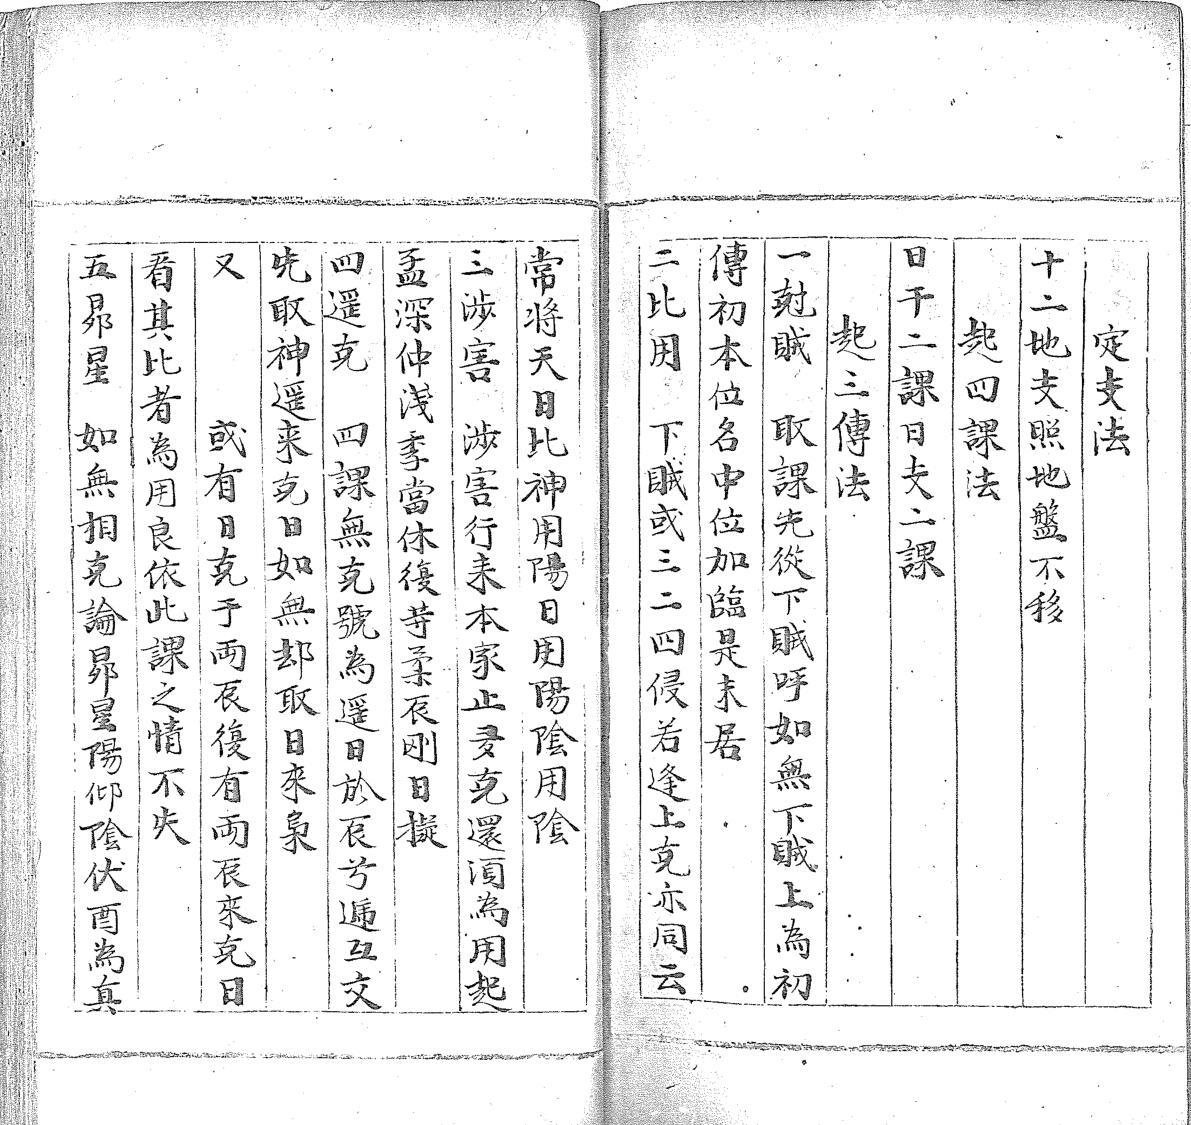 定支法
十二地支照地盤不移
起四課法
日干二課日支二課
起三傳法
一尅賊 取課先從下賊呼如無下賊上為初
傳初本位名中位加臨是末居
二比用 下賊或三二四侵若逢上克亦同云
常將天日比神用陽日用陽陰用陰
三涉害 涉害行来本家止㝵克還湏為用起
孟深仲浅季當休復等柔辰剛日擬
四遥克 四課無克號為遥日於辰兮逓互交
先取神遥来克日如無却取日來裊
又 或有日克于両辰復有両辰來克日
看其比者為用良依此課之情不失
五昴星 如無相克論昴星陽仰陰伏酉為真